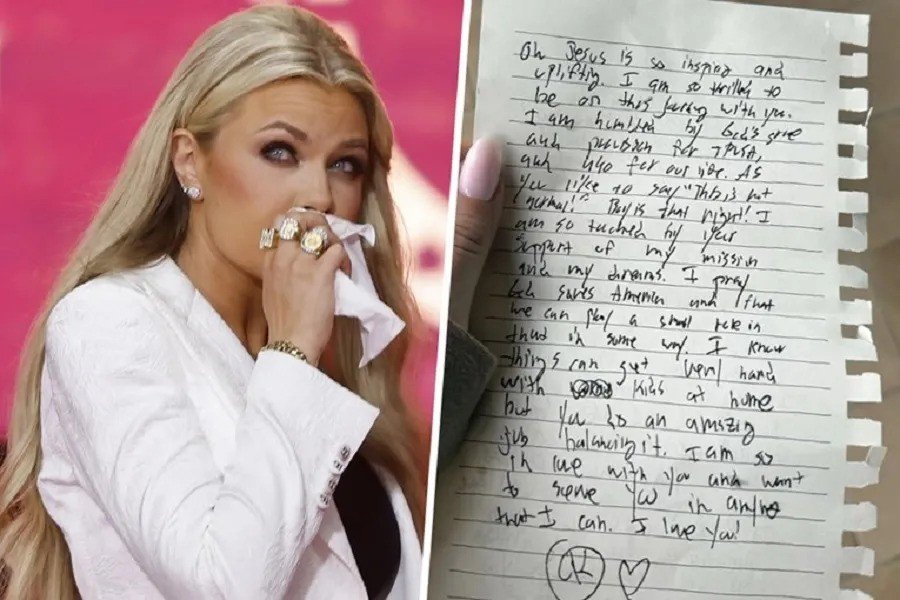 Oh Jesus is so inspiring and
uplifting. I am so thrilled to
be on this journey with you.
I am humbled by God's grace
and provision for TPUSA,
and also for our life. As
you like to say "This is not
normal!" Boy is that right! I
am so touched by your
support of my mission
and my dreams. I pray
God saves America and that
we can play a small role in
that in some way. I know
things can get very hard
with kids at home
but you do an amazing
job balancing it. I am so
in love with you and want
to serve you in any
that I can. I love you!
CK